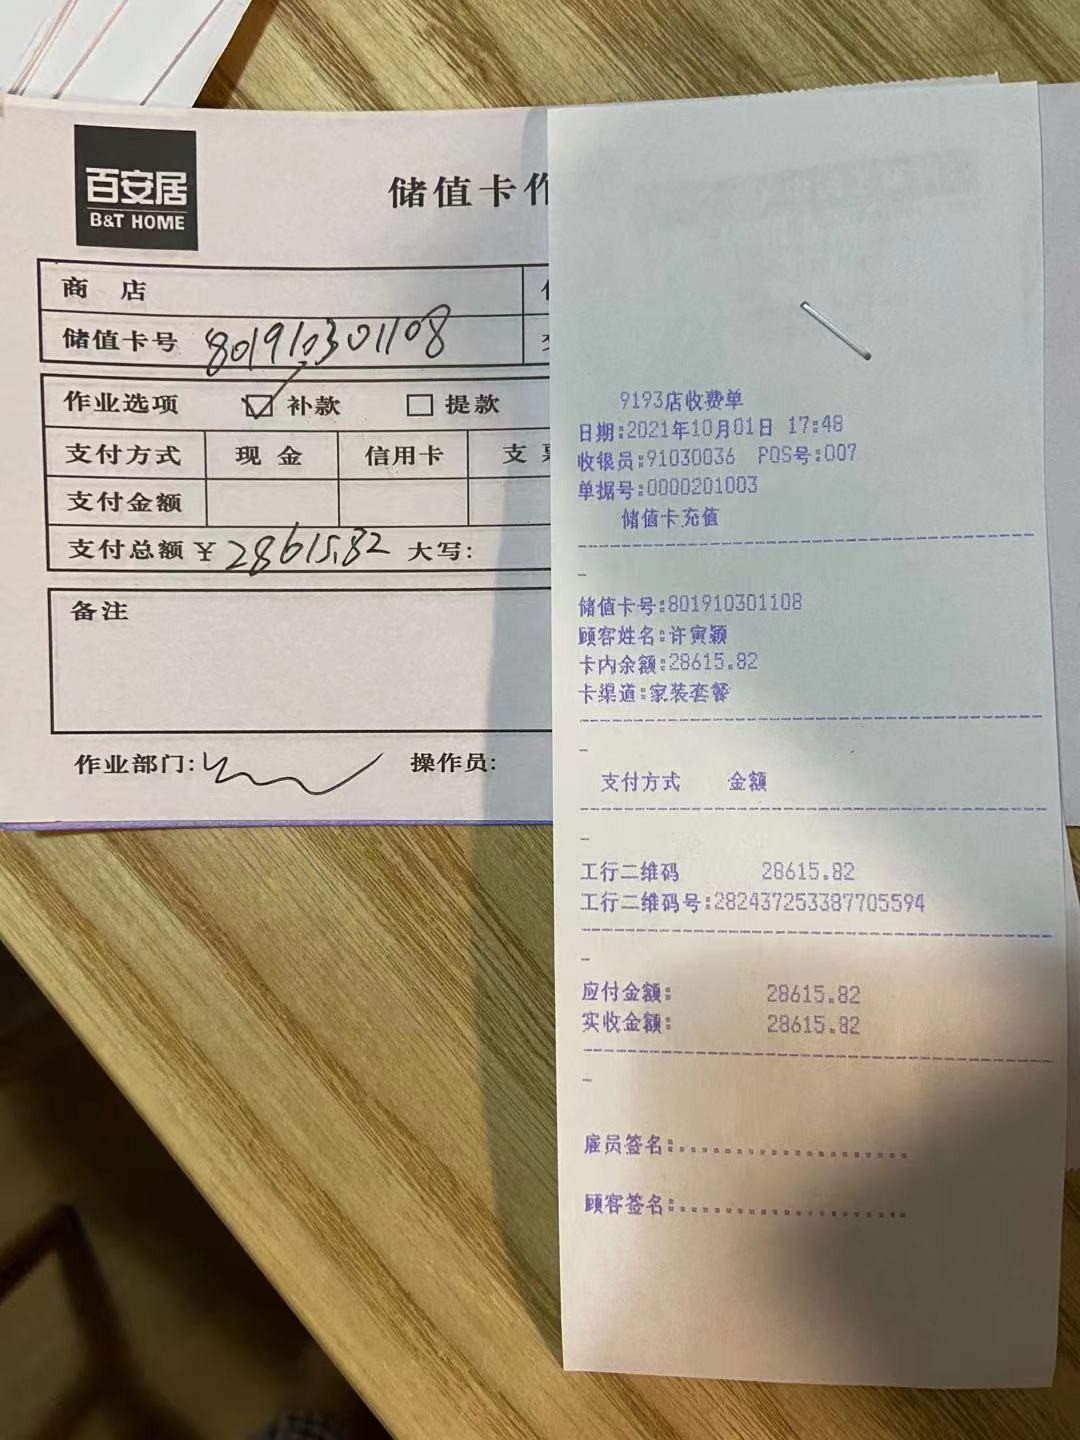 百安居
B&T HOME
储值卡作
商 店
储值卡号 801910301108
作业选项 补款 提款
支付方式 现 金 信用卡 支
支付金额
支付总额 ¥ 28615.82 大写:
备注
作业部门: 操作员:
9193店收费单
日期:2021年10月01日 17:48
收银员:91030036 POS号:007
单据号:0000201003
储值卡充值
储值卡号:801910301108
顾客姓名:许寅颖
卡内余额:28615.82
卡渠道:家装套餐
支付方式 金额
工行二维码 28615.82
工行二维码号:282437253387705594
应付金额: 28615.82
实收金额: 28615.82
雇员签名:
顾客签名: